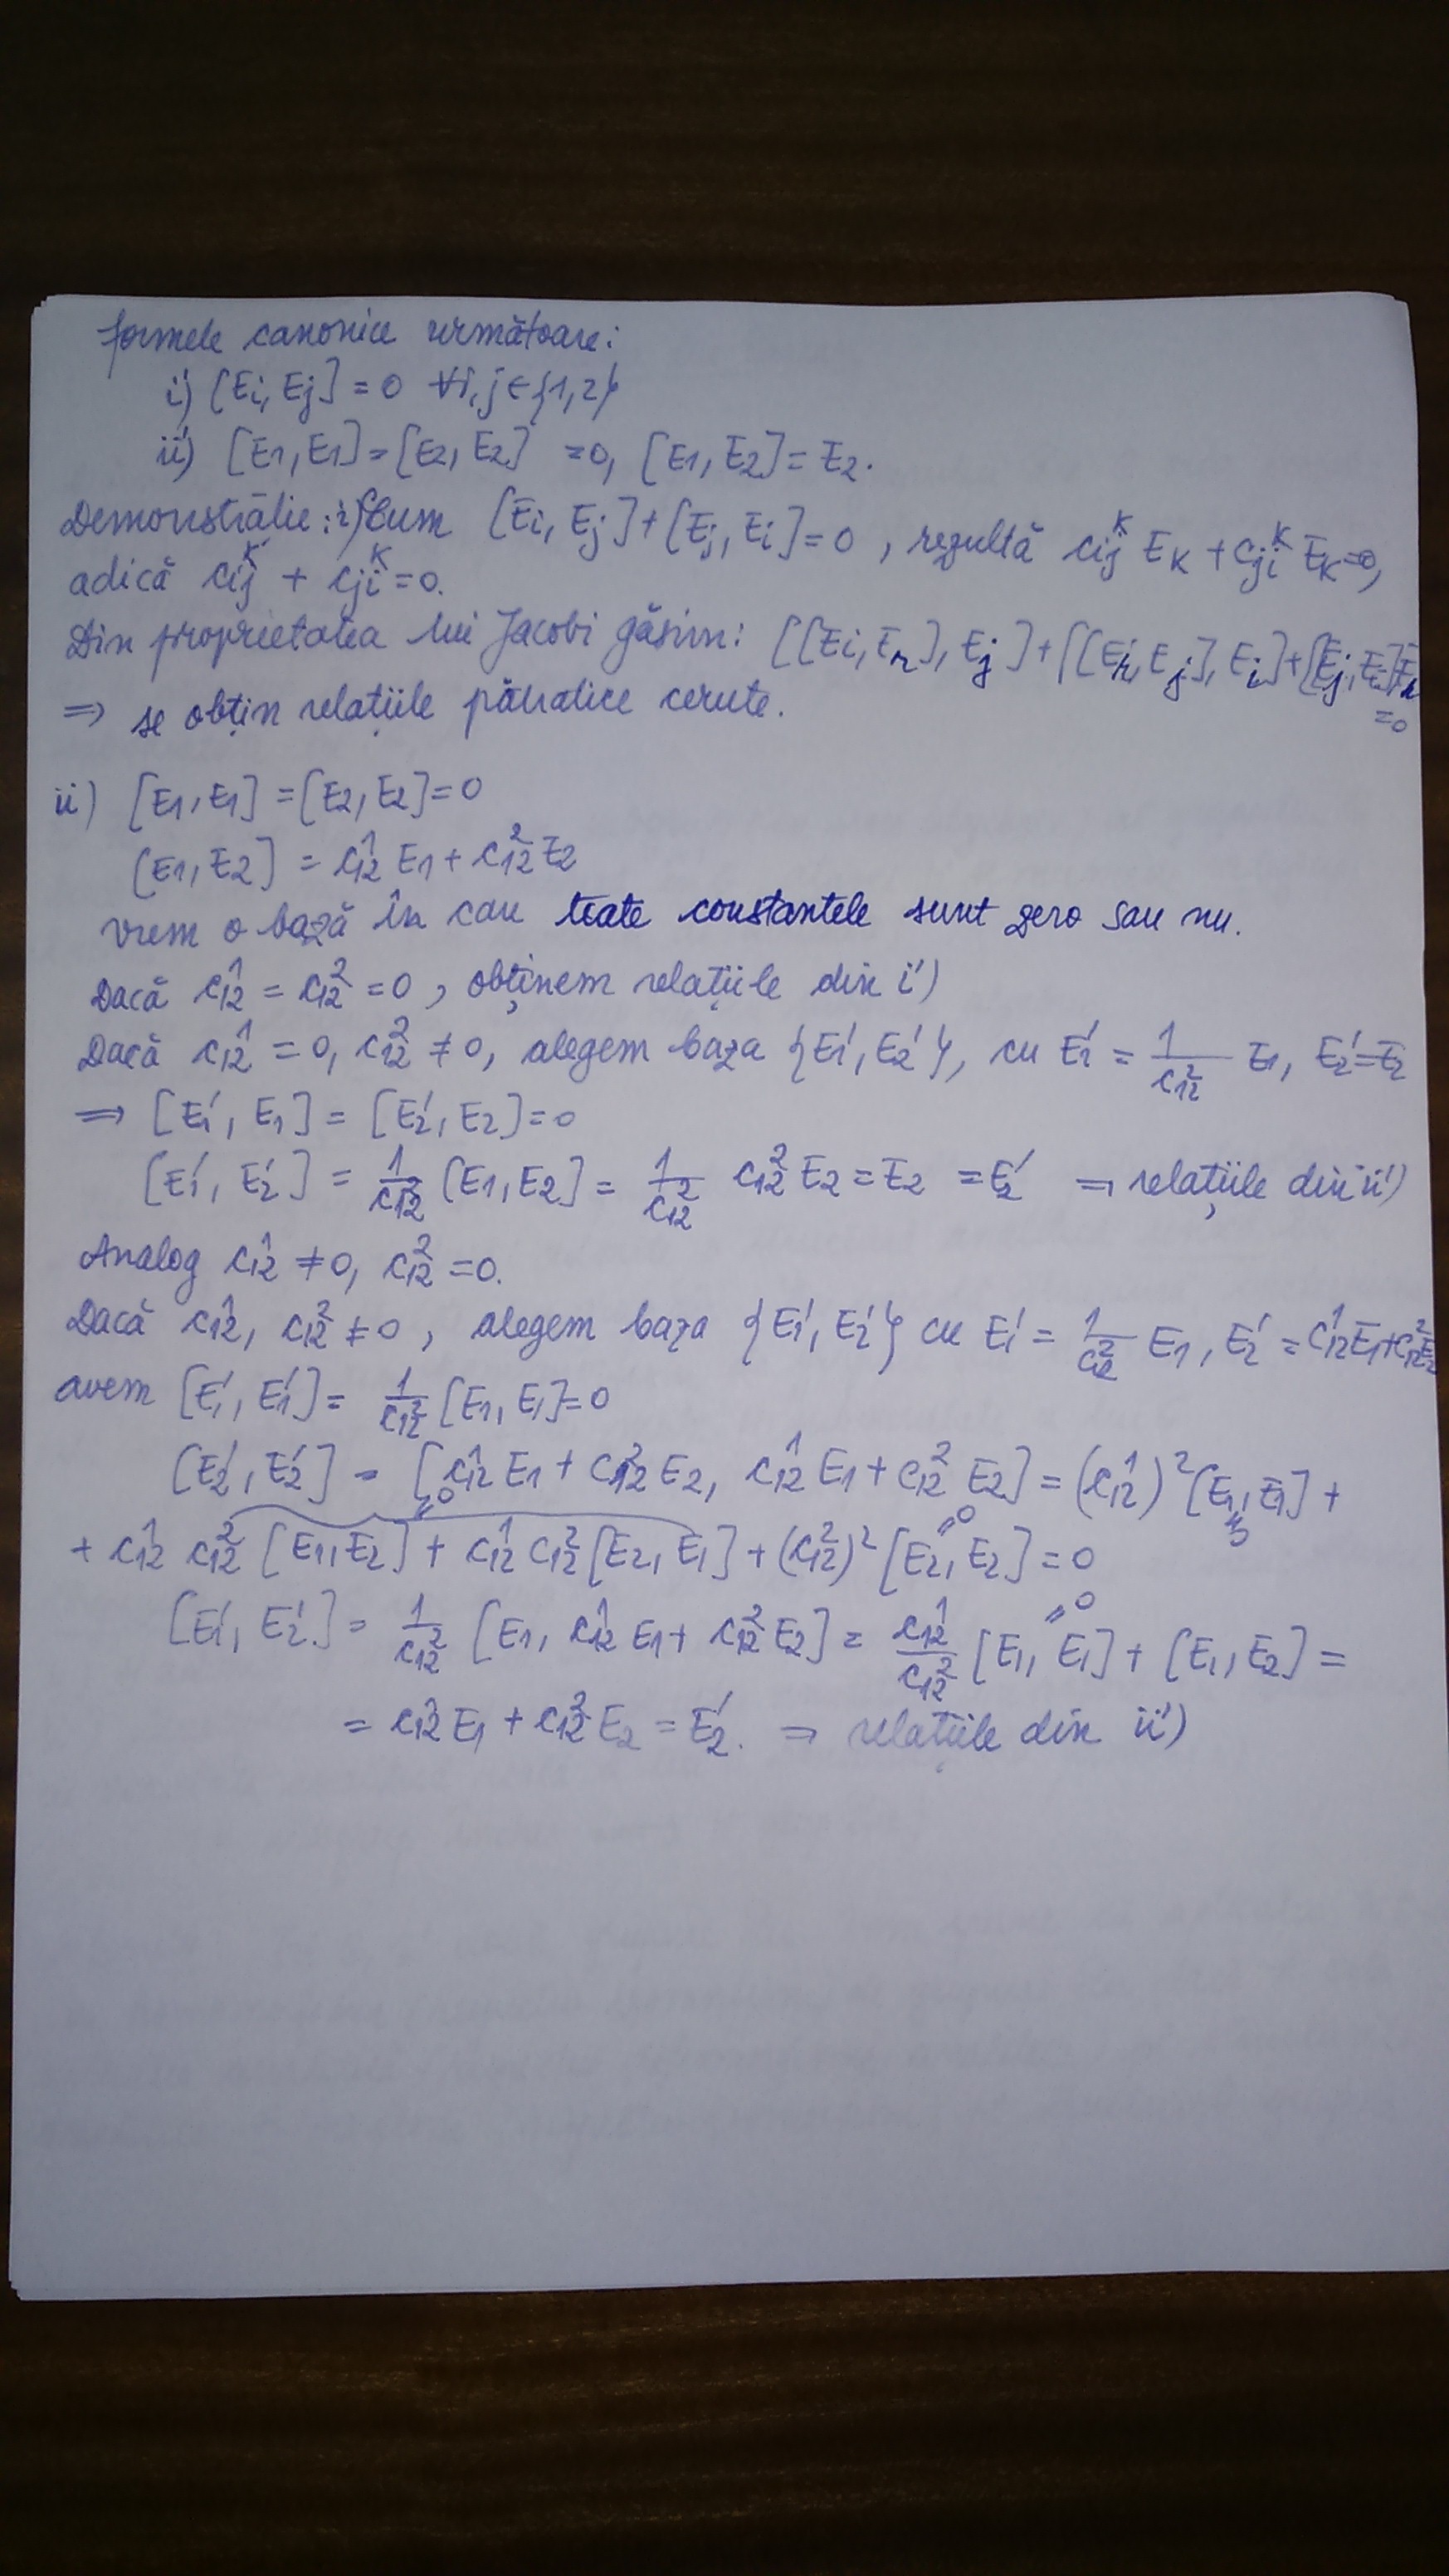 formele canonice următoare:
i') [Ei, Ej] = 0 ∀i, j ∈ {1,2}
ii') [E1, E1] = [E2, E2] = 0, [E1, E2] = E2.
Demonstrație: i) Cum [Ei, Ej] + [Ej, Ei] = 0, rezultă cij^k Ek + cji^k Ek = 0,
adică cij^k + cji^k = 0.
Din proprietatea lui Jacobi găsim: [[Ei, Er], Ej] + [[Er, Ej], Ei] + [[Ej, Ei], Er] = 0
⇒ se obțin relațiile pătratice cerute.
ii) [E1, E1] = [E2, E2] = 0
[E1, E2] = c12^1 E1 + c12^2 E2
vrem o bază în care toate constantele sunt zero sau nu.
Dacă c12^1 = c12^2 = 0, obținem relațiile din i')
Dacă c12^1 = 0, c12^2 ≠ 0, alegem baza {E1', E2'}, cu E1' = 1/c12^2 E1, E2' = E2
⇒ [E1', E1] = [E2', E2] = 0
[E1', E2'] = 1/c12^2 [E1, E2] = 1/c12^2 c12^2 E2 = E2 = E2' ⇒ relațiile din ii')
Analog c12^1 ≠ 0, c12^2 = 0.
Dacă c12^1, c12^2 ≠ 0, alegem baza {E1', E2'} cu E1' = 1/c12^2 E1, E2' = c12^1 E1 + c12^2 E2
avem [E1', E1'] = 1/c12^2 [E1, E1] = 0
[E2', E2'] = [c12^1 E1 + c12^2 E2, c12^1 E1 + c12^2 E2] = (c12^1)^2 [E1, E1] +
+ c12^1 c12^2 [E1, E2] + c12^1 c12^2 [E2, E1] + (c12^2)^2 [E2, E2] = 0
[E1', E2'] = 1/c12^2 [E1, c12^1 E1 + c12^2 E2] = c12^1/c12^2 [E1, E1] + [E1, E2] =
= c12^1 E1 + c12^2 E2 = E2'. ⇒ relațiile din ii')